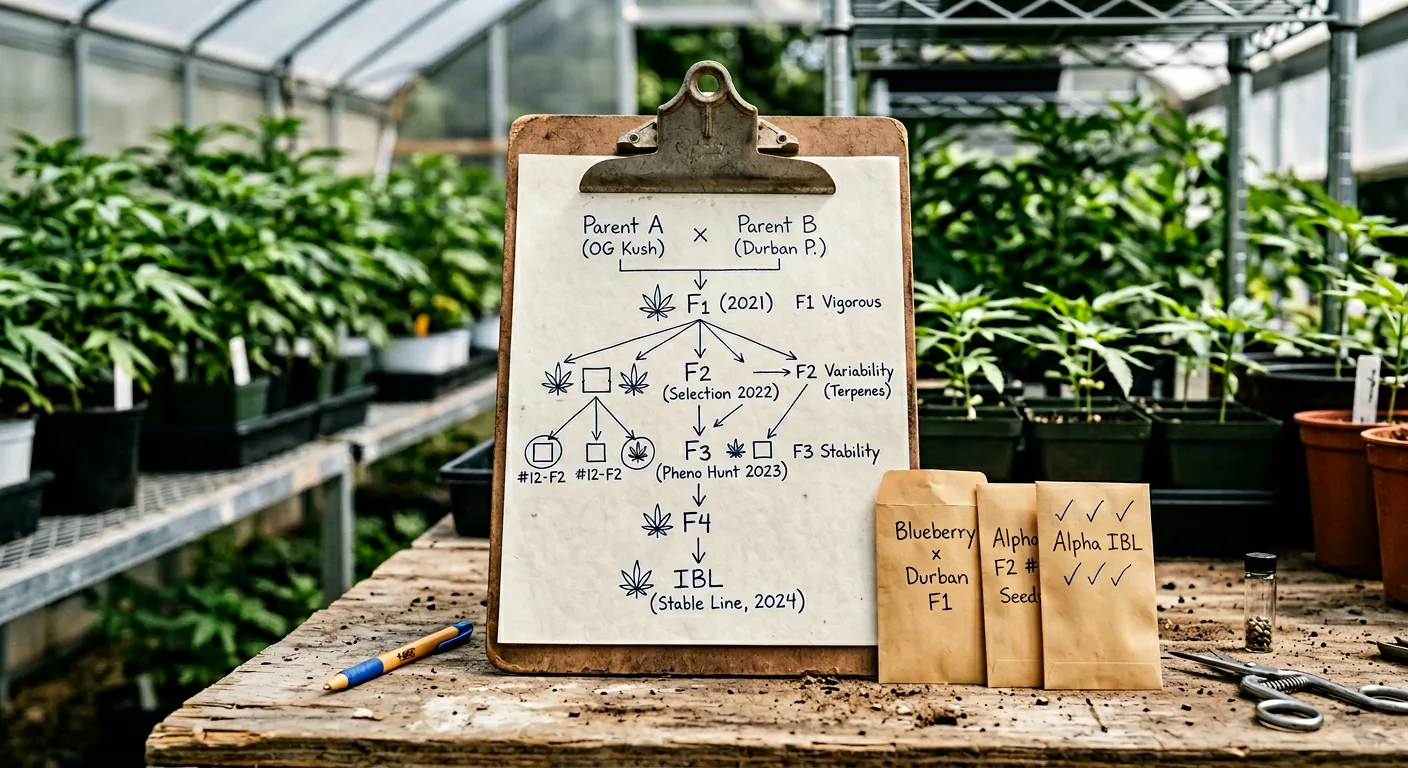 Parent A × Parent B
(OG Kush) (Durban P.)
F1 (2021) F1 Vigorous
F2 F2 Variability
(Selection 2022) (Terpenes)
F3 F3 Stability
#12-F2 #12-F2 (Pheno Hunt 2023)
F4
IBL
(Stable Line, 2024)
Blueberry
×
Durban
F1
Alpha
F2 #
Seeds
Alpha IBL